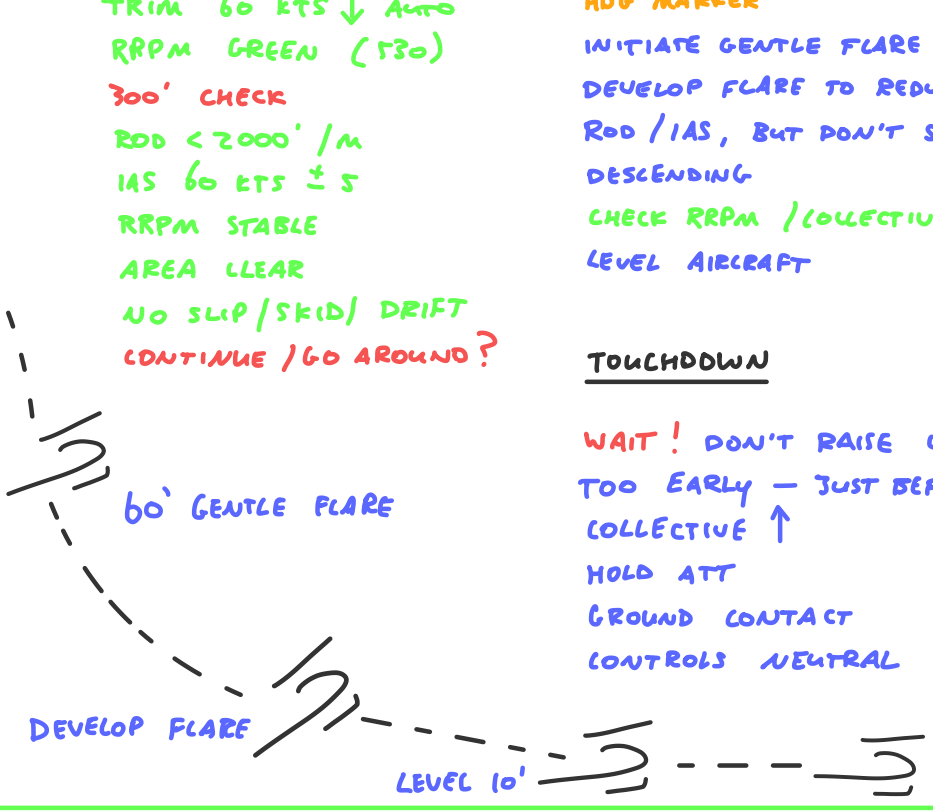 TRIM 60 KTS ↓ AUTO
RRPM GREEN (530)
300' CHECK
ROD < 2000' / M
IAS 60 KTS ± 5
RRPM STABLE
AREA CLEAR
NO SLIP / SKID / DRIFT
CONTINUE / GO AROUND ?
60' GENTLE FLARE
DEVELOP FLARE
LEVEL 10'
HDG MARKER
INITIATE GENTLE FLARE
DEVELOP FLARE TO
ROD / IAS, BUT DON'T
DESCENDING
CHECK RRPM /
LEVEL AIRCRAFT
TOUCHDOWN
WAIT ! DON'T RAISE
TOO EARLY – JUST
COLLECTIVE ↑
HOLD ATT
GROUND CONTACT
CONTROLS NEUTRAL